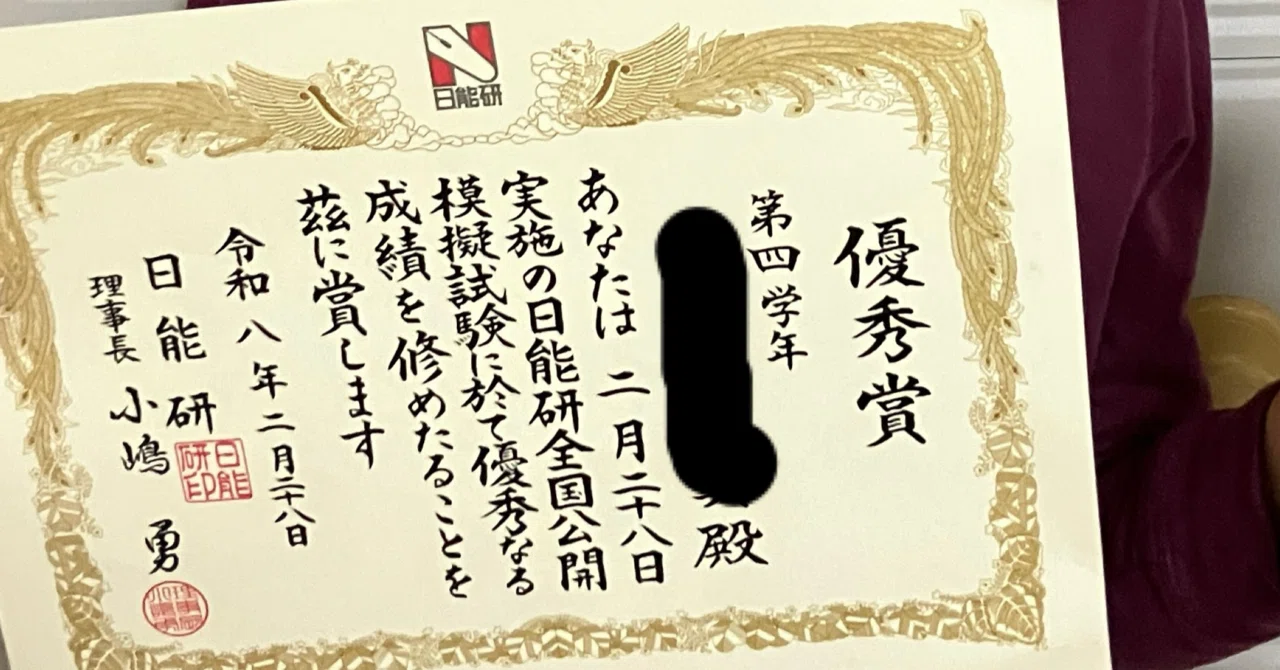 日能研
優秀賞
第四学年
殿
あなたは二月二十八日
実施の日能研全国公開
模擬試験に於て優秀なる
成績を修めたることを
茲に賞します
令和八年二月二十八日
日能研
日能研印
理事長 小嶋 勇